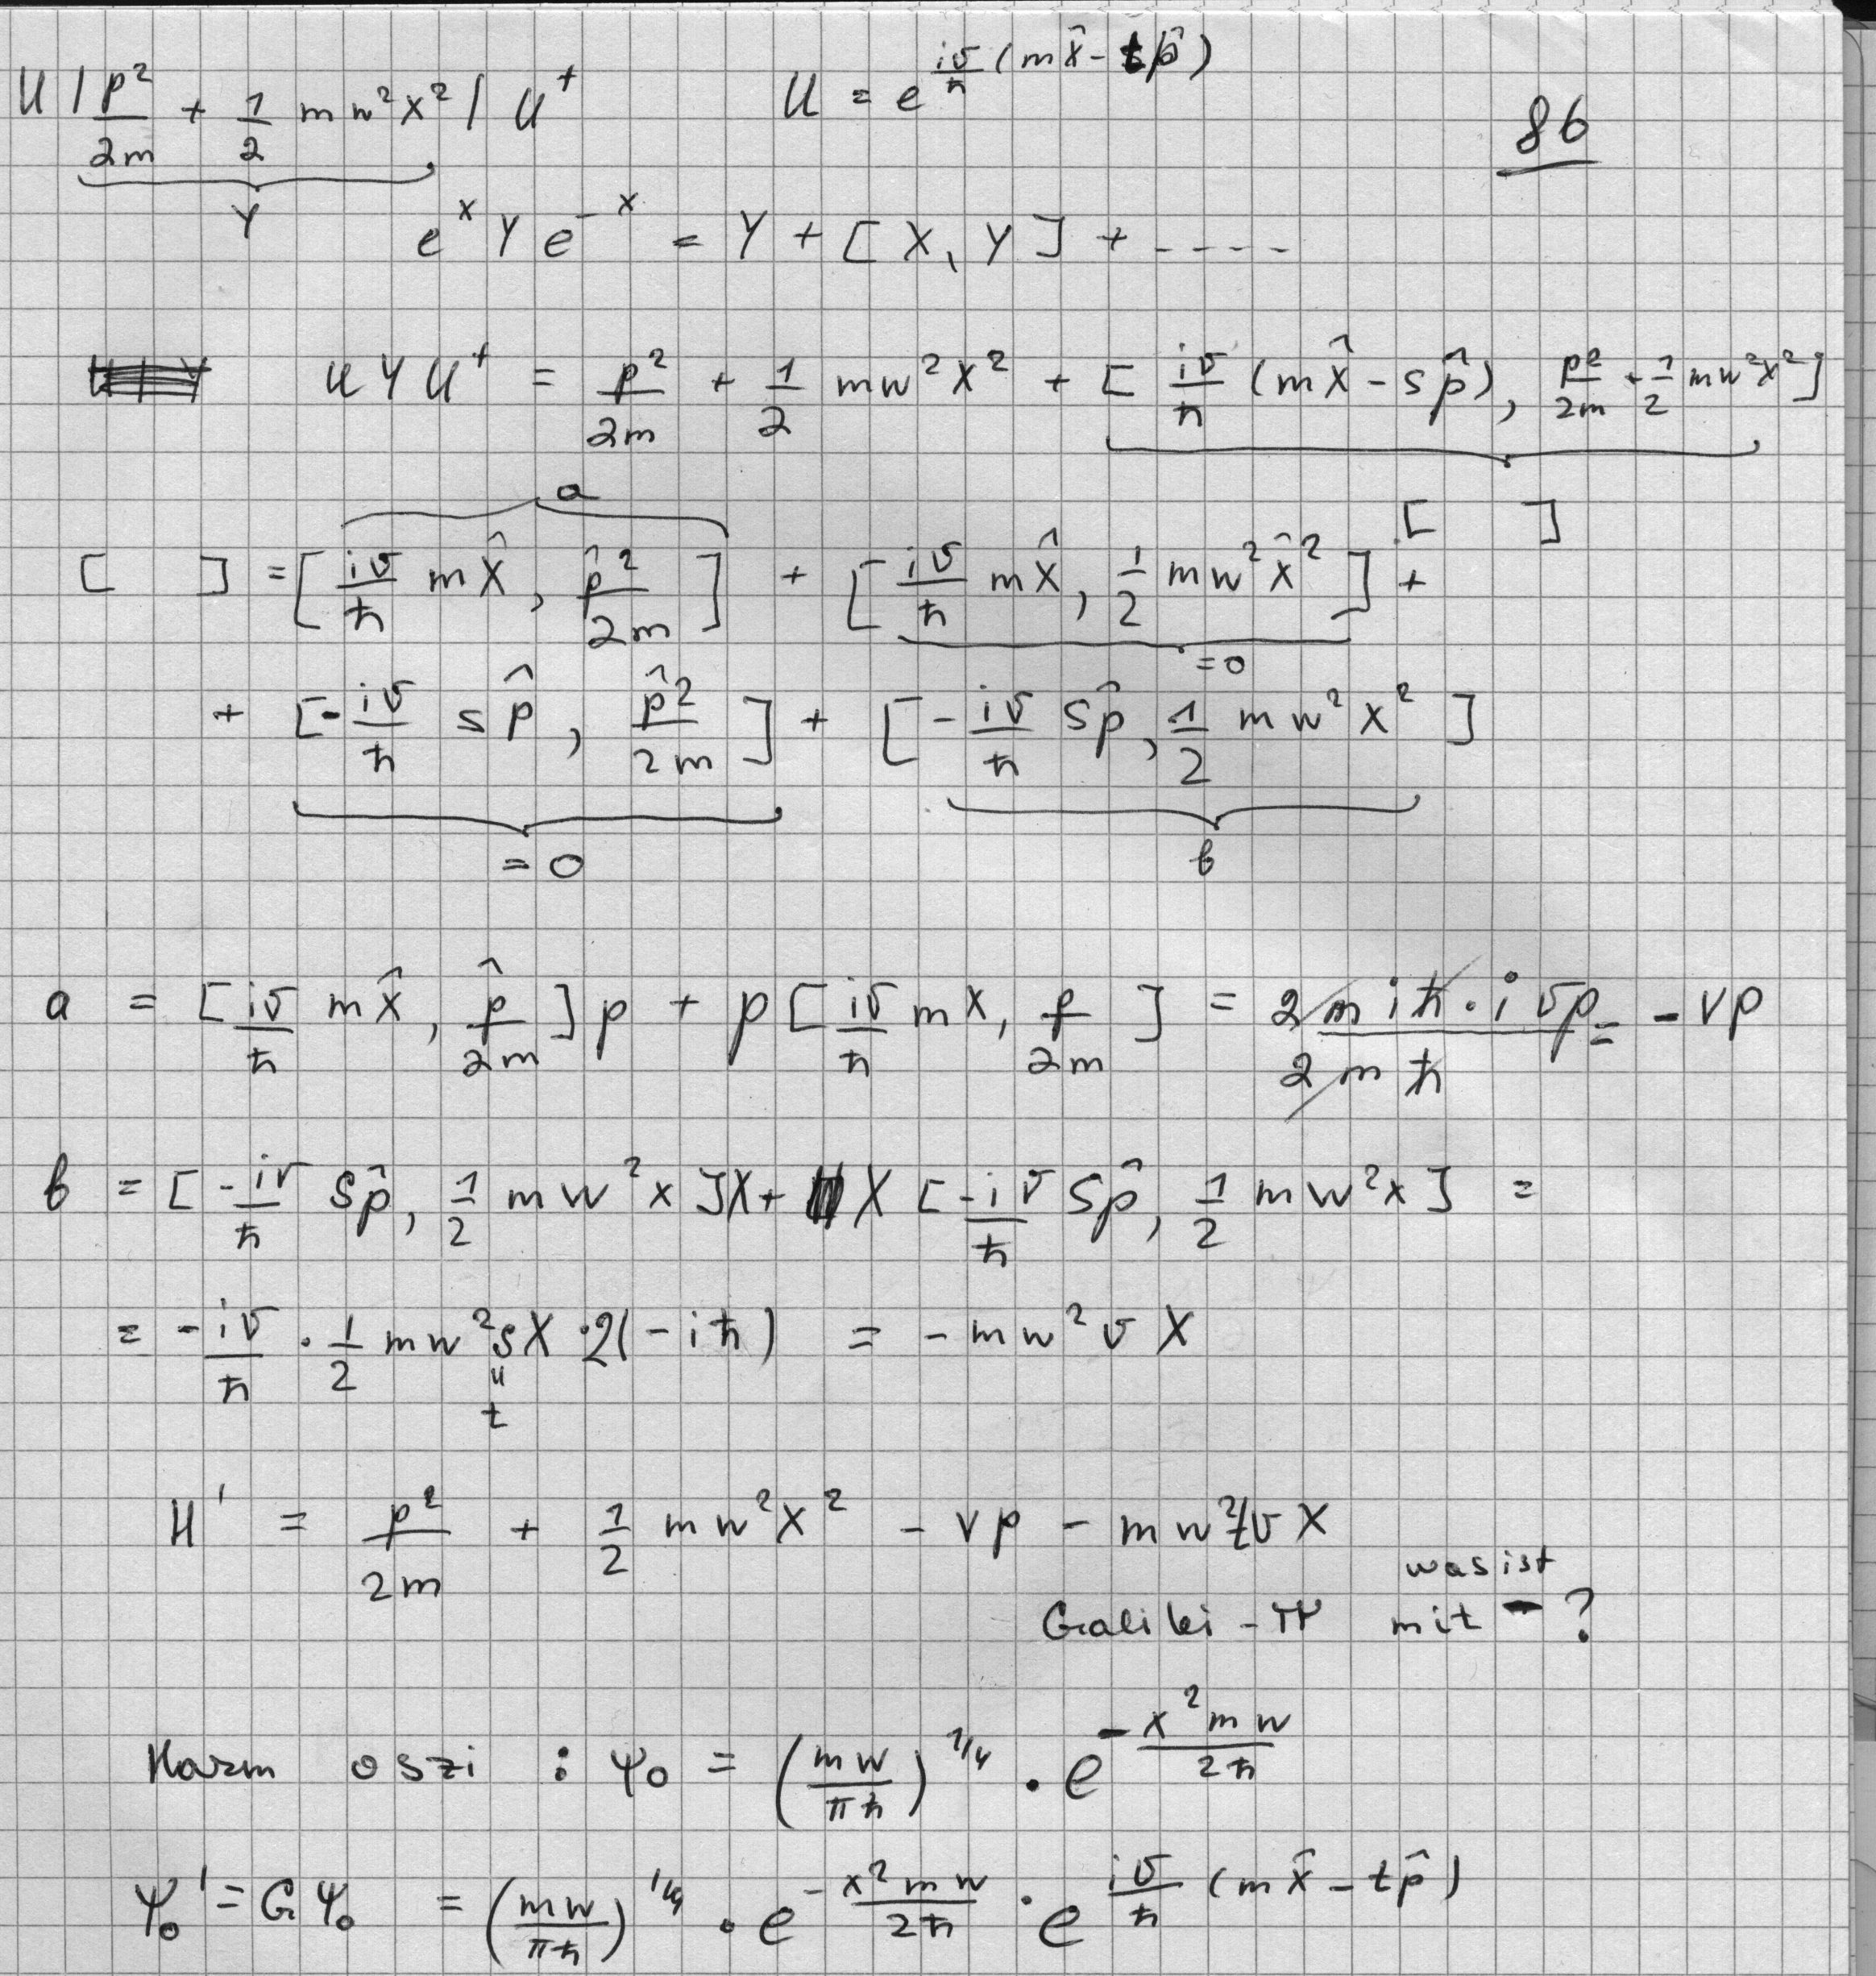 U | p²/2m + 1/2 mw²x² | U⁺    U = e^{iv/ħ (mx̂ - tp̂)}    86
Y    e^x Y e^{-x} = Y + [X, Y] + - - - -
U Y U⁺ = p²/2m + 1/2 mw²x² + [iv/ħ (mx̂ - sp̂), p²/2m + 1/2 mw²x²]
a    [ ]
[ ] = [iv/ħ mx̂, p̂²/2m] + [iv/ħ mx̂, 1/2 mw²x̂²] +
= 0
+ [-iv/ħ sp̂, p̂²/2m] + [-iv/ħ sp̂, 1/2 mw²x²]
= 0    b
a = [iv/ħ mx̂, p̂/2m] p + p [iv/ħ mx, p/2m] = 2 m iħ · i vp / 2 m ħ = - vp
b = [-iv/ħ sp̂, 1/2 mw²x] x + x [-iv/ħ sp̂, 1/2 mw²x] =
= - iv/ħ · 1/2 mw² s x · 2(-iħ) = - mw² v x
=
t
H' = p²/2m + 1/2 mw²x² - vp - mw² t v x
was ist
Galilei - Tr mit - ?
Harm oszi : ψ₀ = (mw/πħ)^{1/4} · e^{-x²mw/2ħ}
ψ₀' = G ψ₀ = (mw/πħ)^{1/4} · e^{-x²mw/2ħ} · e^{iv/ħ (mx̂ - tp̂)}